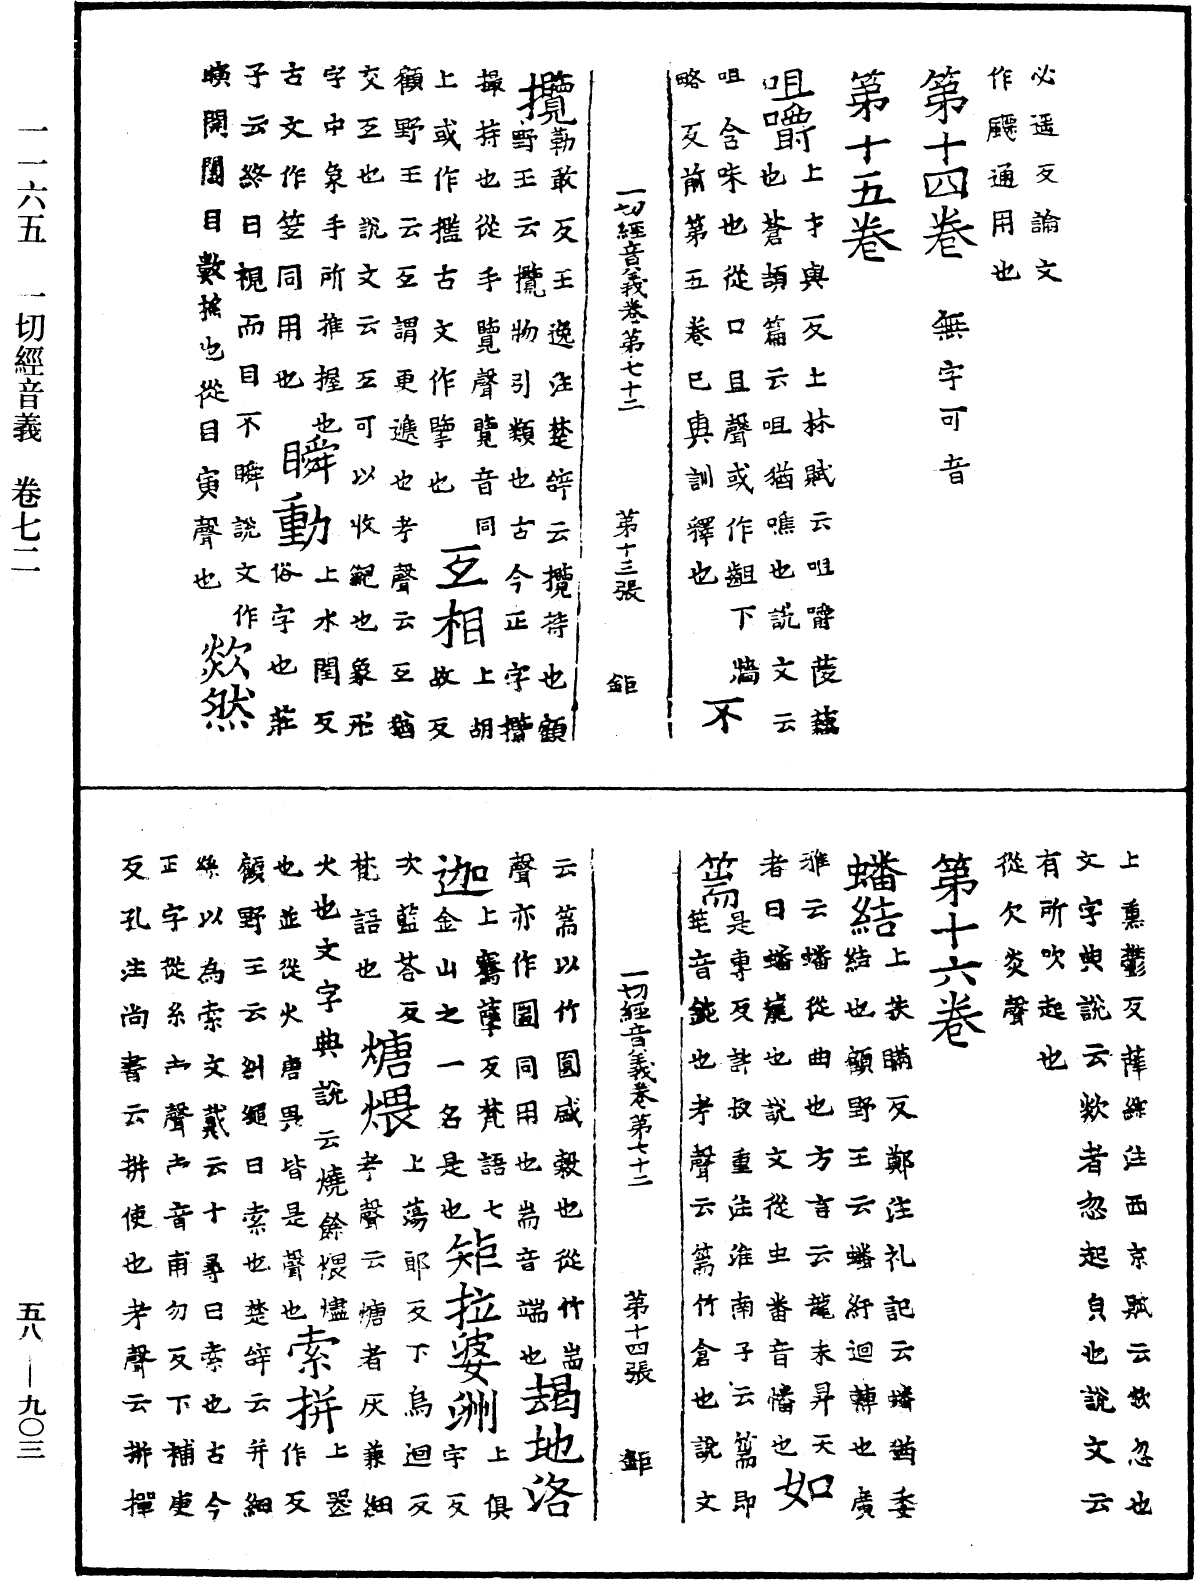 必遥反論文
作飈通用也
第十四卷 無字可音
第十五卷
咀嚼上才與反上林賦云咀嚼蔆藕
也蒼頡篇云咀猶噍也說文云
咀含味也從口且聲或作齟下牆
略反前第五卷已具訓釋也 不
一切經音義卷第七十二 第十三張 鉅
攬勒敢反王逸注楚辝云攬持也顧
野王云攬物引類也古今正字攬
撮持也從手覽聲覽音同
上或作擥古文作擥也 互相上胡故反
顧野王云互謂更遞也考聲云互猶
交互也說文云互可以收䋄也象形
字中象手所推握也 瞬動上水閏反
古文作笠同用也俗字也莊
子云終日視而目不瞬說文作
瞚開闔目數搖也從目寅聲也 欻然
上熏鬱反薛綜注西京賦云欻忽也
文字典說云欻者忽起皃也說文云
有所吹起也
從欠炎聲
第十六卷
蟠結上扶瞞反鄭注礼記云蟠猶委
結也顧野王云蟠紆迴轉也廣
雅云蟠從曲也方言云龍未昇天
者曰蟠龍也說文從虫番音幡也 如
篅是專反許叔重注淮南子云篅即
筳音鈍也考聲云篅竹倉也說文
一切經音義卷第七十二 第十四張 鉅
云篅以竹圓盛穀也從竹耑
聲亦作圌同用也耑音端也 朅地洛
迦上騫孽反梵語七
金山之一名是也 矩拉婆洲上俱字反
次藍荅反
梵語也 煻煨上蕩郎反下烏迴反
考聲云煻者灰兼細
火也文字典說云燒餘煨燼
也並從火唐畏皆是聲也 索拼上蘓作反
顧野王云糾繩曰索也楚辝云并細
絲以為索文戴云十尋曰索也古今
正字從糸𣎵聲𣎵音甫勿反下補更
反孔注尚書云拼使也考聲云拼撣
一一六五 一切經音義 卷七二 五八—九〇三